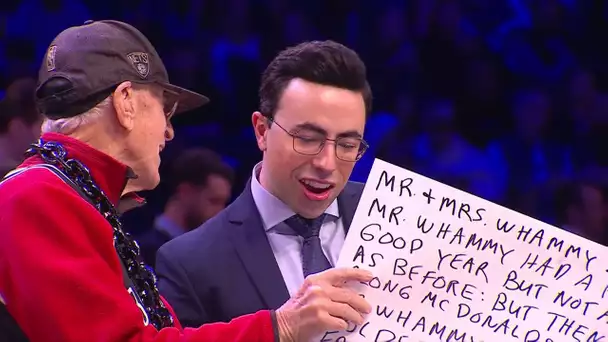 NETS
MR. + MRS. WHAMMY
MR. WHAMMY HAD A
GOOD YEAR BUT NOT
AS BEFORE: BUT THEN
MCDONALDS
WHAMMY